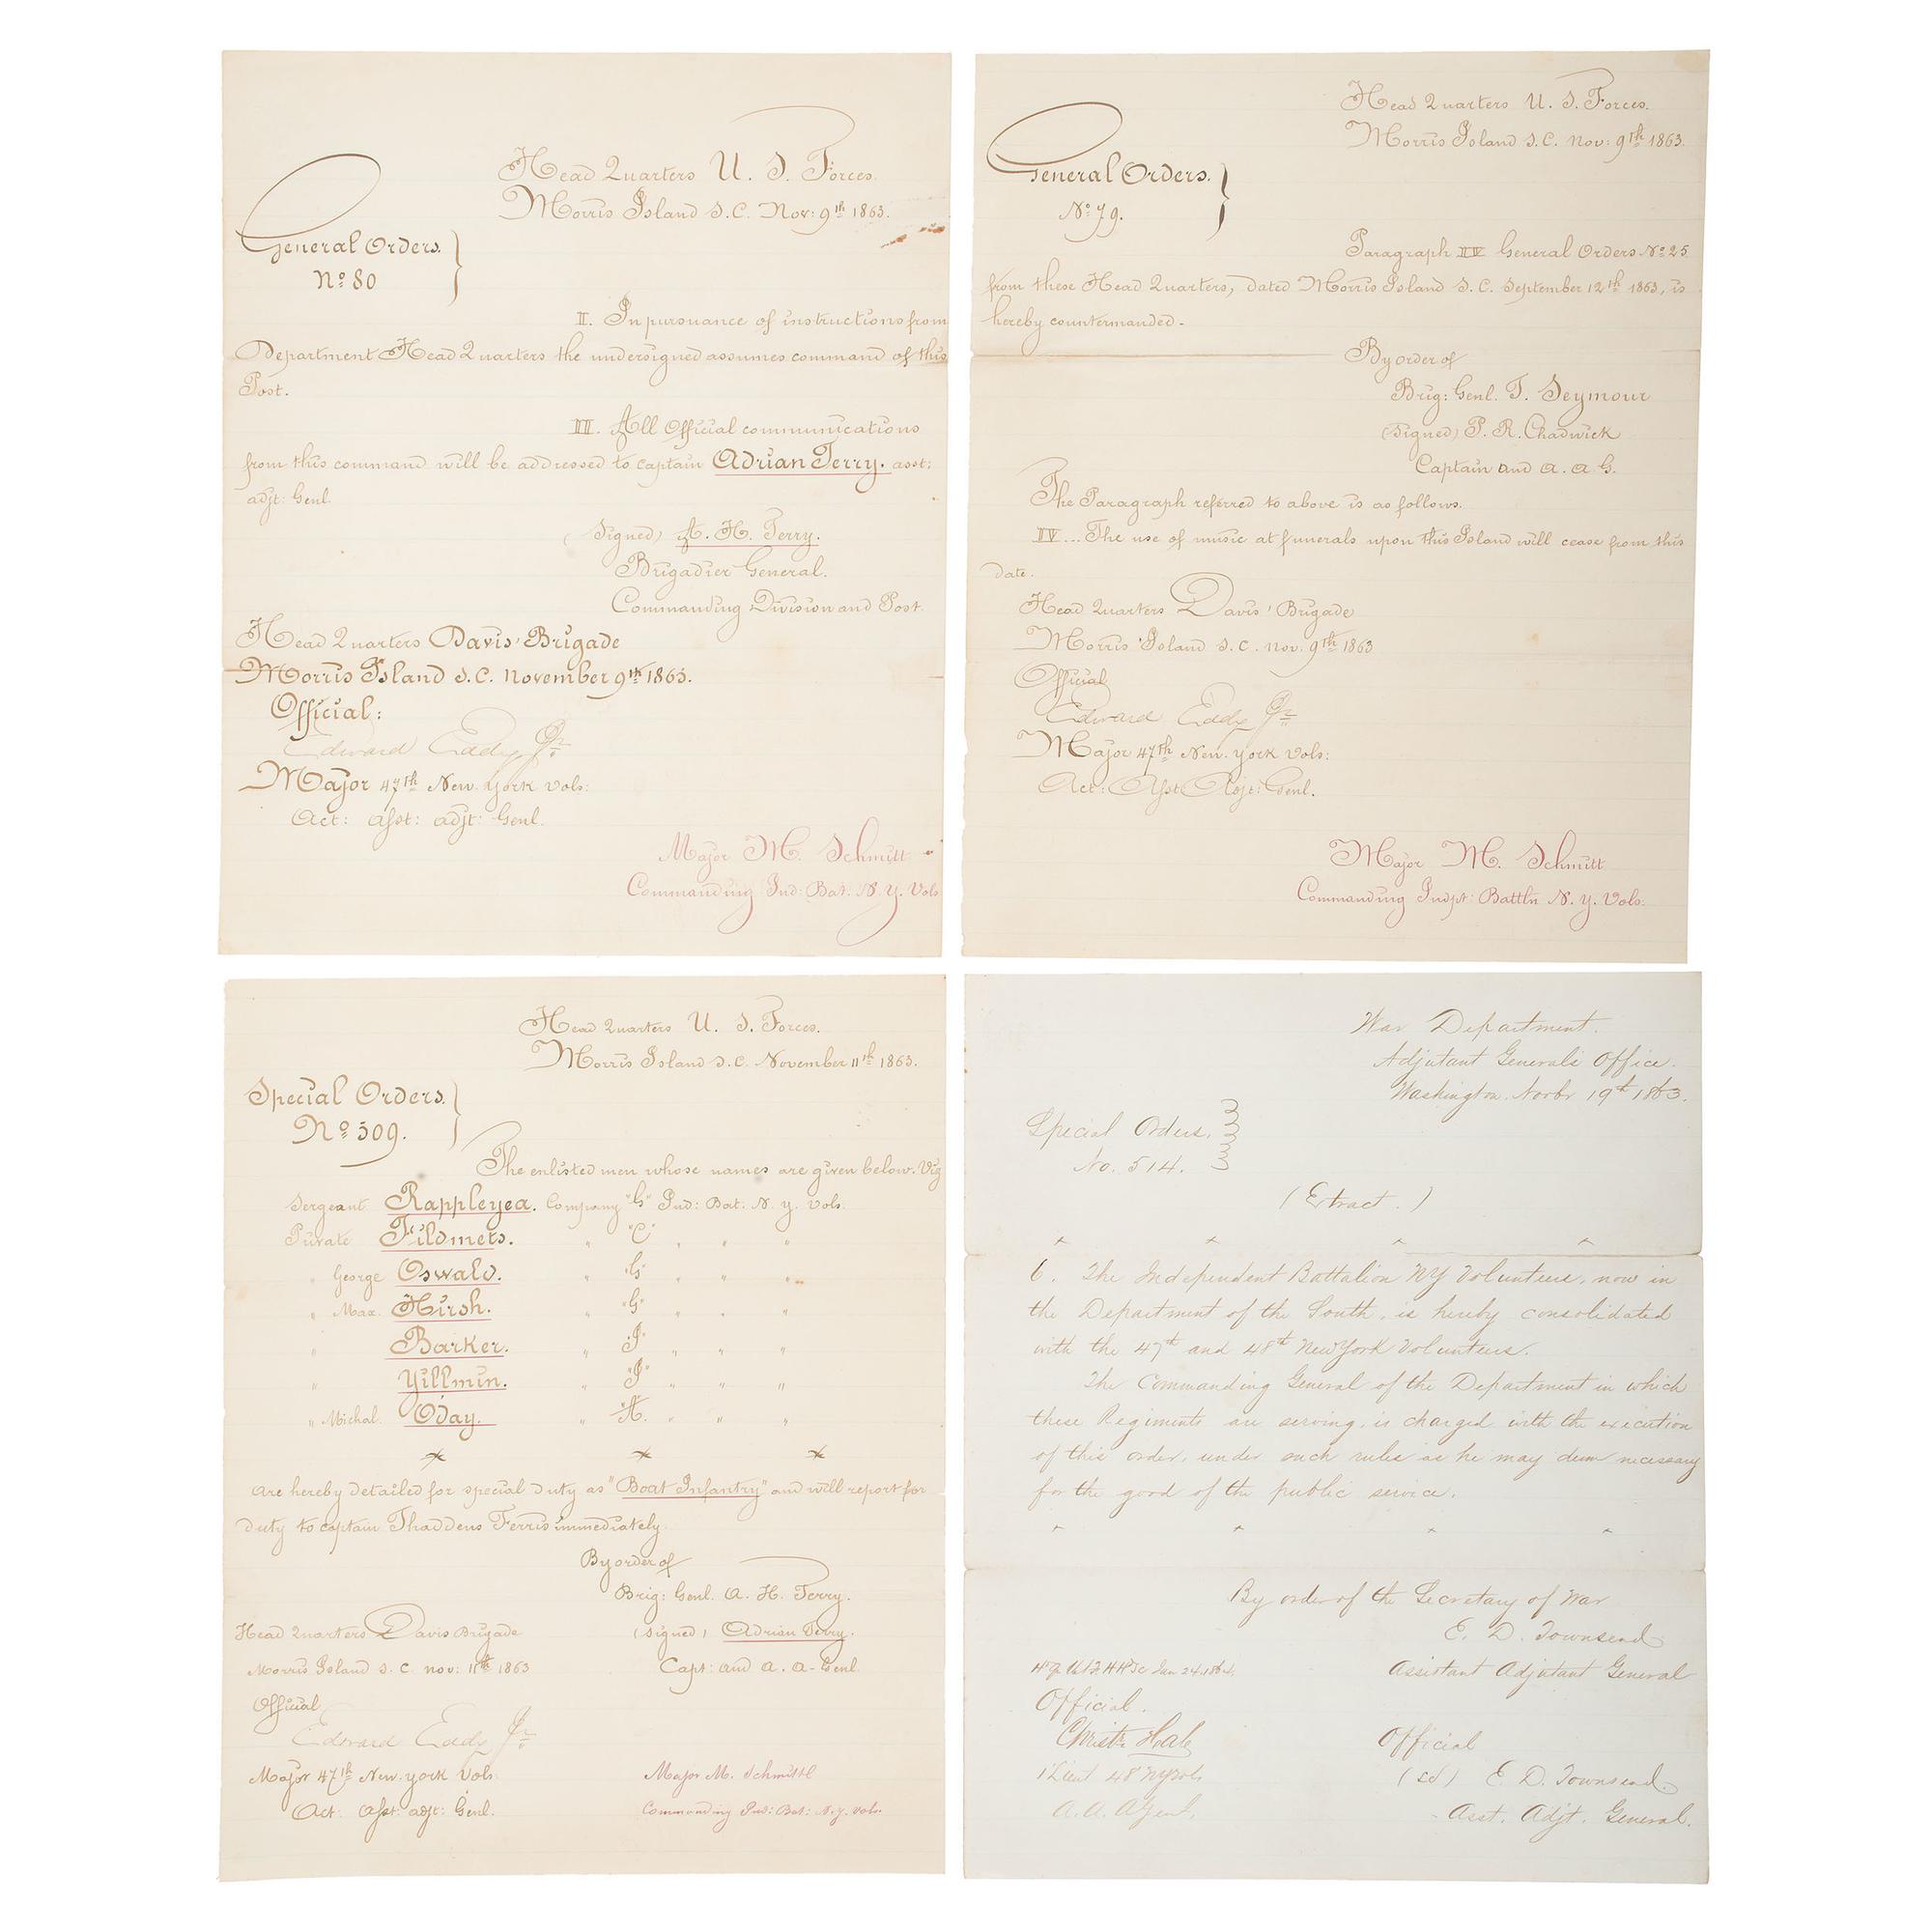 Head Quarters U. S. Forces.
Morris Island S.C. Nov: 9th 1863.
General Orders.
No 80
II. In pursuance of instructions from
Department Head Quarters the undersigned assumes command of this
Post.
III. All Official communications
from this command will be addressed to captain Adrian Terry. asst:
adjt: Genl.
(Signed) A. H. Terry.
Brigadier General.
Commanding Division and Post.
Head Quarters Davis' Brigade
Morris Island S.C. November 9th 1863.
Official:
Edward Eddy Jr
Major 47th New. York Vols:
Act: Asst: adjt: Genl.
Major M. Schmitt
Commanding Ind: Bat: N. Y. Vols
Head Quarters U. S. Forces.
Morris Island S.C. Nov: 9th 1863.
General Orders.
No 79.
Paragraph IV General Orders No 25
from these Head Quarters, dated Morris Island S.C. September 12th 1863, is
hereby countermanded.
By order of
Brig: Genl. T. Seymour
(Signed) P. R. Chadwick
Captain and a. a G.
The Paragraph referred to above is as follows.
IV... The use of music at funerals upon this Island will cease from this
date.
Head Quarters Davis' Brigade
Morris Island S.C. Nov. 9th 1863
Official
Edward Eddy Jr
Major 47th New. York Vols:
Act: Asst Adjt: Genl.
Major M. Schmitt
Commanding Indpt: Battln N. Y. Vols.
Head Quarters U. S. Forces.
Morris Island S.C. November 11th 1863.
Special Orders.
No 509.
The enlisted men whose names are given below. Viz
Sergeant Rappleyea. Company "G" Ind: Bat: N. Y. Vols.
Private Fildmets. " "C" " " "
" George Oswald. " "G" " " "
" Max. Hirsh. " "G" " " "
" Barker. " "I" " " "
" Yillmin. " "I" " " "
" Michal. Oday. " "A". " " "
are hereby detailed for special duty as "Boat Infantry" and will report for
duty to captain Thaddens Ferris immediately.
By order of
Brig: Genl. A. H. Terry.
Head Quarters Davis Brigade
(signed) Adrian Terry.
Morris Island S.C. nov: 11th 1863
Capt: and a. a- Genl.
Official
Edward Eddy Jr
Major 47th New. York Vols
Act: Asst: adjt: Genl.
Major M. Schmittl
Commanding Ind: Bat: N. Y. Vols.
War Department.
Adjutant Generals Office.
Washington. Novbr 19th 1863.
Special Orders.
No. 514.
(Extract.)
6. The Independent Battalion NY Volunteers, now in
the Department of the South, is hereby consolidated
with the 47th and 48th New York Volunteers.
The Commanding General of the Department in which
these Regiments are serving, is charged with the execution
of this order, under such rules as he may deem necessary
for the good of the public service.
By order of the Secretary of War
E. D. Townsend
Assistant Adjutant General
Jan 24. 1864.
Official.
1 Lieut 48 NYVols
A. A. AGenl.
Official
(sd) E. D. Townsend.
Asst. Adjt. General.